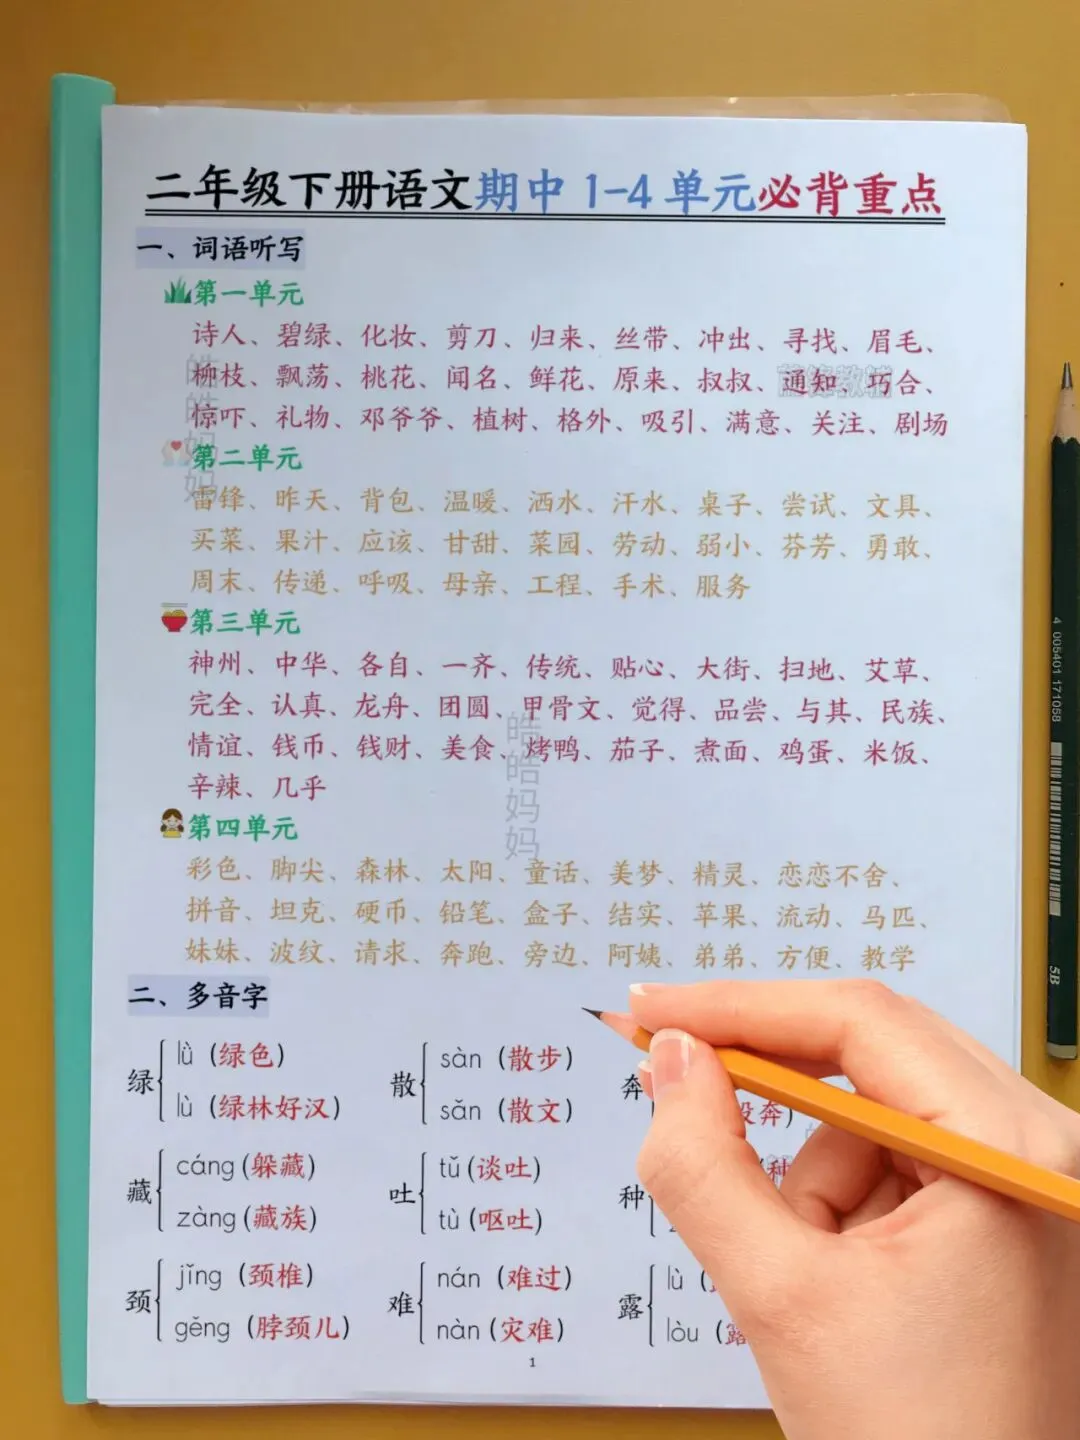 二年级下册语文期中1-4单元必背重点
一、词语听写
第一单元
诗人、碧绿、化妆、剪刀、归来、丝带、冲出、寻找、眉毛、
柳枝、飘荡、桃花、闻名、鲜花、原来、叔叔、通知、巧合、
惊吓、礼物、邓爷爷、植树、格外、吸引、满意、关注、剧场
第二单元
雷锋、昨天、背包、温暖、洒水、汗水、桌子、尝试、文具、
买菜、果汁、应该、甘甜、菜园、劳动、弱小、芬芳、勇敢、
周末、传递、呼吸、母亲、工程、手术、服务
第三单元
神州、中华、各自、一齐、传统、贴心、大街、扫地、艾草、
完全、认真、龙舟、团圆、甲骨文、觉得、品尝、与其、民族、
情谊、钱币、钱财、美食、烤鸭、茄子、煮面、鸡蛋、米饭、
辛辣、几乎
第四单元
彩色、脚尖、森林、太阳、童话、美梦、精灵、恋恋不舍、
拼音、坦克、硬币、铅笔、盒子、结实、苹果、流动、马匹、
妹妹、波纹、请求、奔跑、旁边、阿姨、弟弟、方便、教学
二、多音字
绿 lǜ（绿色） lù（绿林好汉）
散 sàn（散步） sǎn（散文）
奔 奔）
藏 cáng（躲藏） zàng（藏族）
吐 tǔ（谈吐） tù（呕吐）
种 （种
颈 jǐng（颈椎） gěng（脖颈儿）
难 nán（难过） nàn（灾难）
露 lù（ lòu（露
1
皓皓妈妈
皓皓妈妈
4 005401 171058
5B